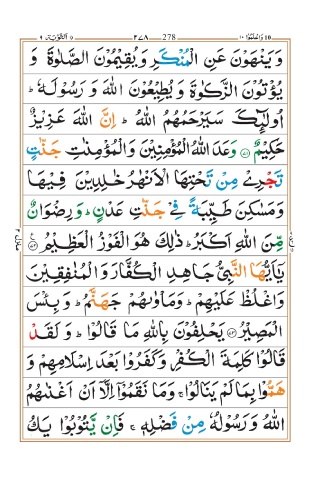 واعلموا ١٠ 278 ٢٧٨ التوبة ٩
وَ یَنْهَوْنَ عَنِ الْمُنْكَرِ وَیُقِیْمُوْنَ الصَّلٰوةَ وَ
یُؤْتُوْنَ الزَّكٰوةَ وَ یُطِیْعُوْنَ اللّٰهَ وَ رَسُوْلَهٗ ؕ
اُولٰٓىِٕكَ سَیَرْحَمُهُمُ اللّٰهُ ؕ اِنَّ اللّٰهَ عَزِیْزٌ
حَكِیْمٌ ۝۷۱ وَعَدَ اللّٰهُ الْمُؤْمِنِیْنَ وَ الْمُؤْمِنٰتِ جَنّٰتٍ
تَجْرِیْ مِنْ تَحْتِهَا الْاَنْهٰرُ خٰلِدِیْنَ فِیْهَا
وَ مَسٰكِنَ طَیِّبَةً فِیْ جَنّٰتِ عَدْنٍ ؕ وَ رِضْوَانٌ
مِّنَ اللّٰهِ اَكْبَرُ ؕ ذٰلِكَ هُوَ الْفَوْزُ الْعَظِیْمُ ۝۷۲
یٰۤاَیُّهَا النَّبِیُّ جَاهِدِ الْكُفَّارَ وَ الْمُنٰفِقِیْنَ
وَ اغْلُظْ عَلَیْهِمْ ؕ وَ مَاْوٰىهُمْ جَهَنَّمُ ؕ وَ بِئْسَ
الْمَصِیْرُ ۝۷۳ یَحْلِفُوْنَ بِاللّٰهِ مَا قَالُوْا ؕ وَ لَقَدْ
قَالُوْا كَلِمَةَ الْكُفْرِ وَ كَفَرُوْا بَعْدَ اِسْلَامِهِمْ وَ
هَمُّوْا بِمَا لَمْ یَنَالُوْا ۚ وَ مَا نَقَمُوْۤا اِلَّاۤ اَنْ اَغْنٰىهُمُ
اللّٰهُ وَ رَسُوْلُهٗ مِنْ فَضْلِهٖ ۚ فَاِنْ یَّتُوْبُوْا یَكُ